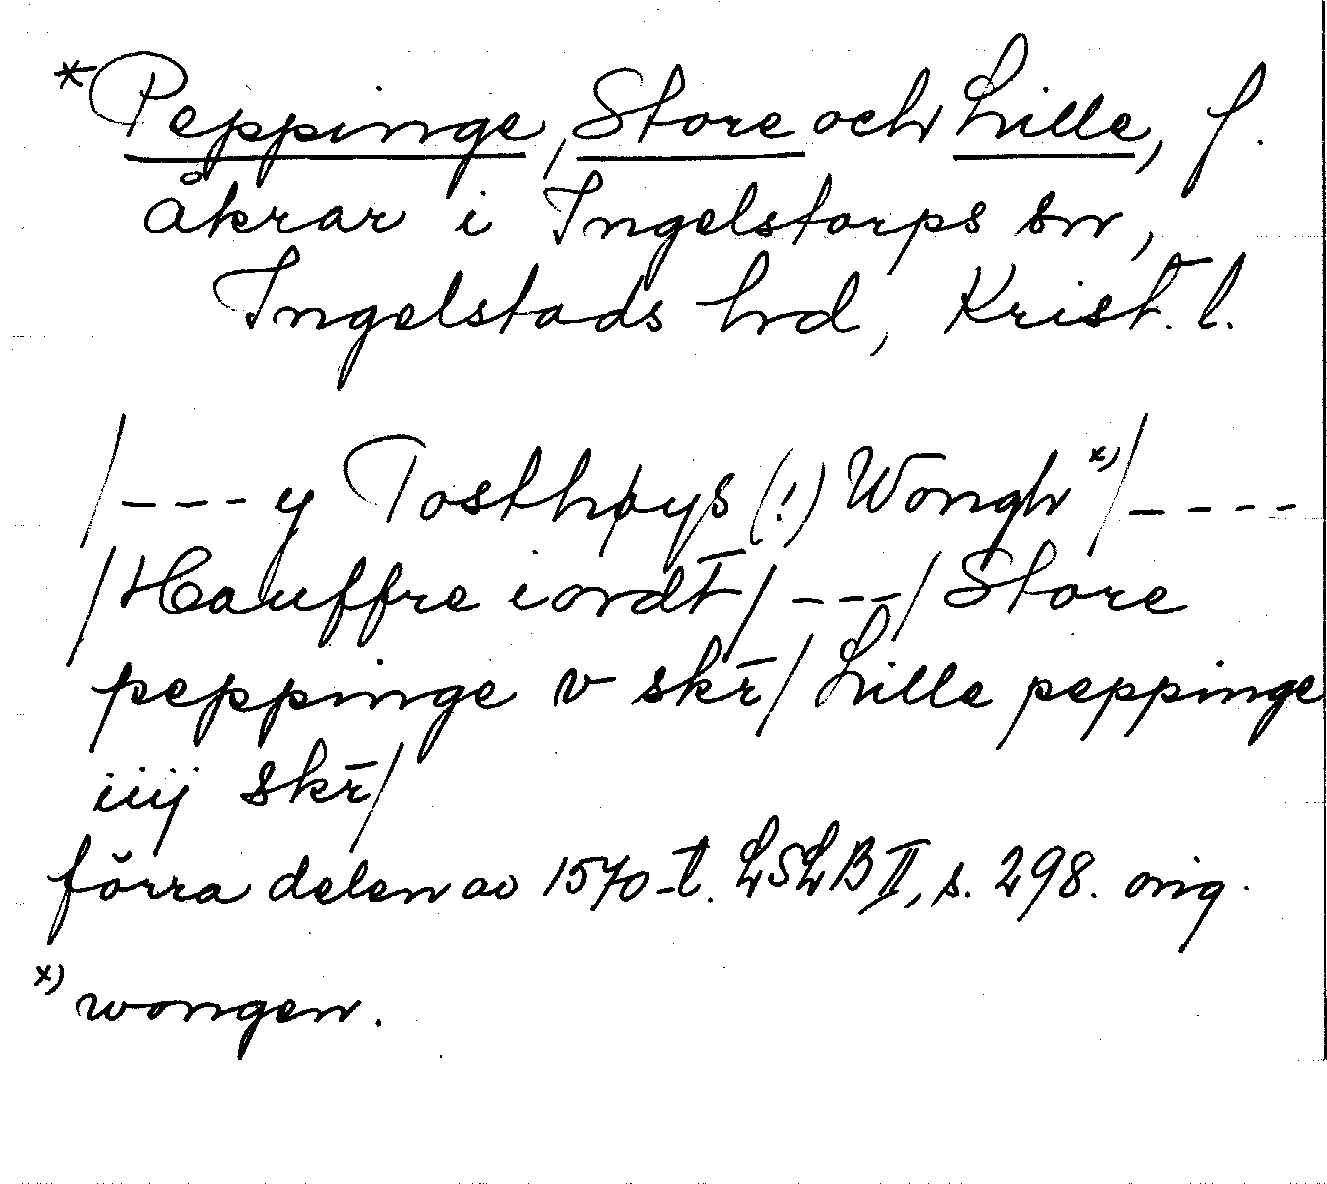 *Peppinge, Store och Lille, f.
åkrar i Ingelstorps sn,
Ingelstads hrd, Krist. l.
/---y Tosthøys (!) Wongh x)/----
/Hauffre iordt̄/---/Store
peppinge v skr̄/Lille peppinge
iiij skr̄/
förra delen av 1570-t. LSLB II, s. 298. orig.
x) wongen.